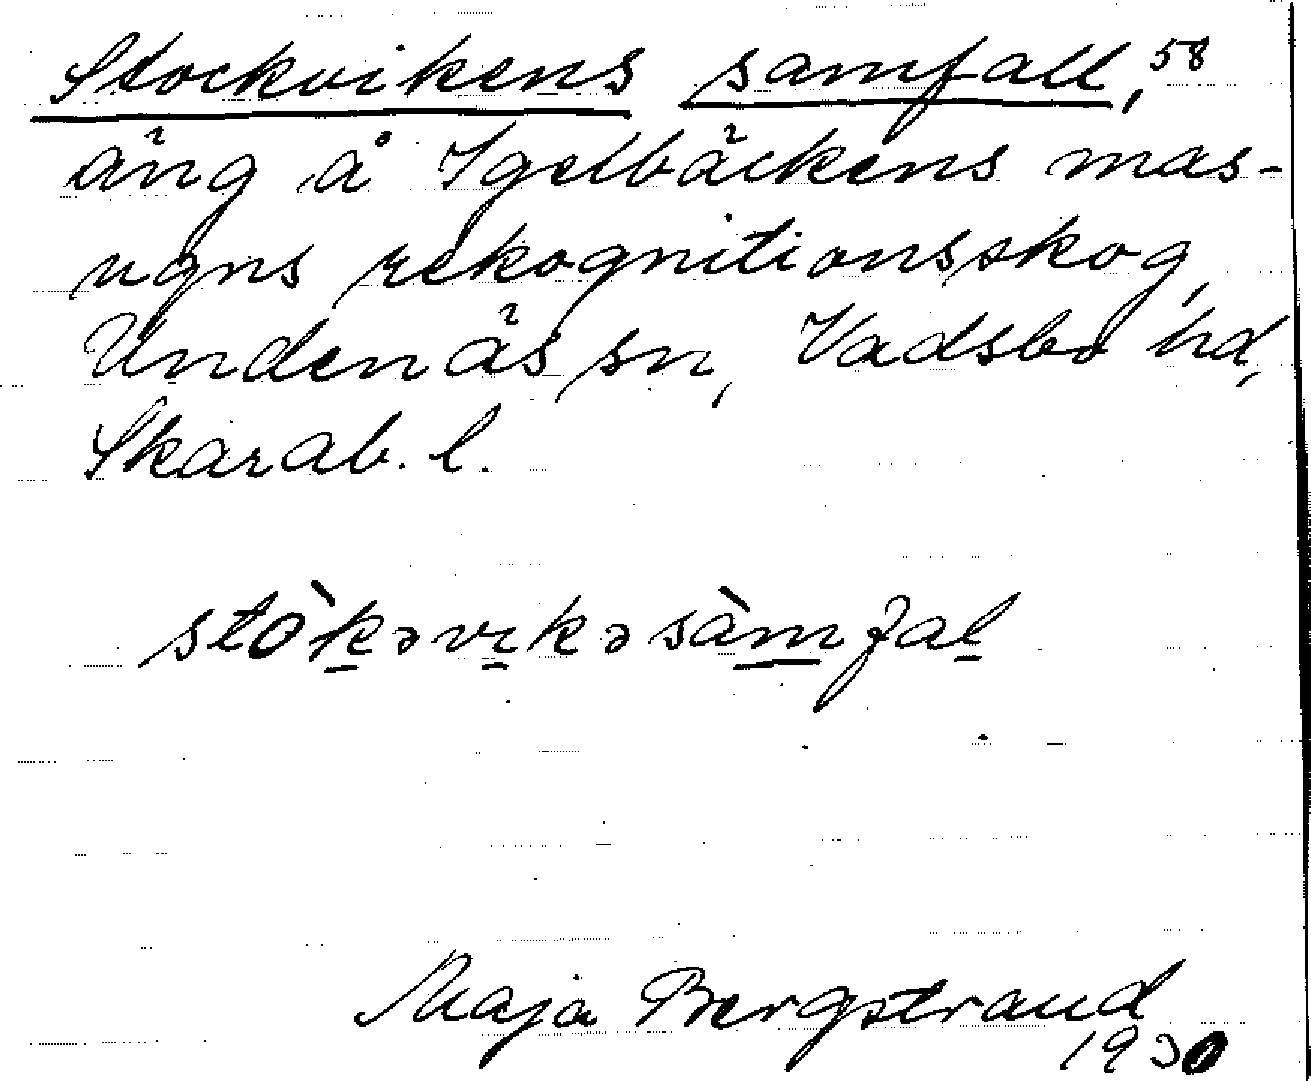 Stockvikens samfall, 58
äng å Igelbäckens mas-
ugns rekognitionsskog,
Undenäs sn, Vadsbo hd,
Skarab. l.
stòkəvikəsàmfal
Maja Bergstrand
1930